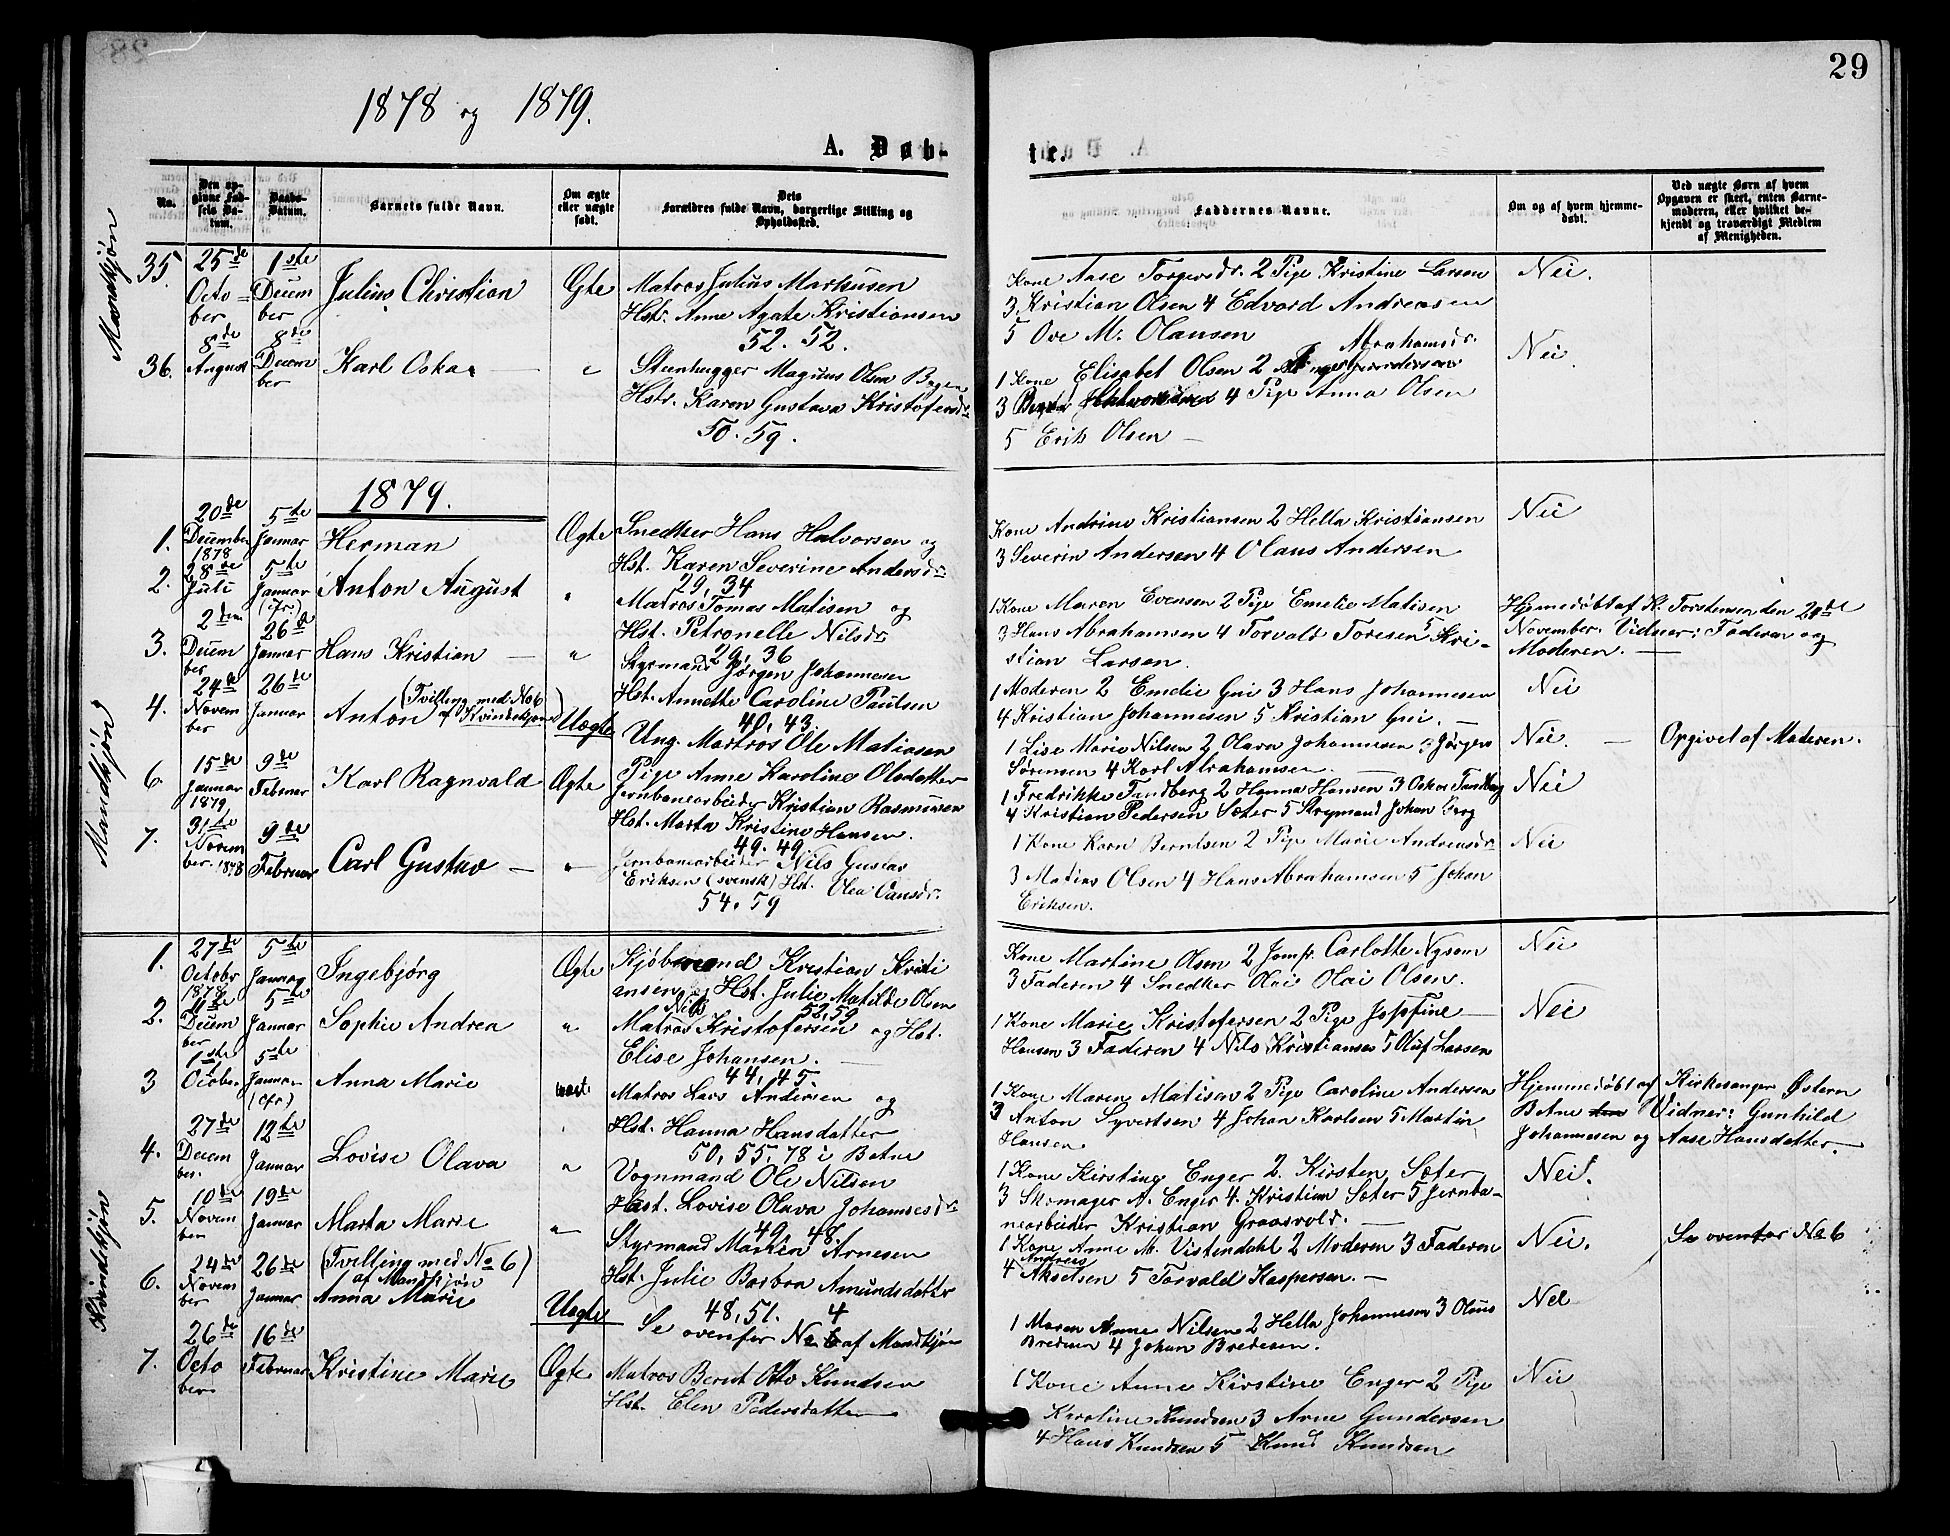 29
1878 og 1879.
A. Døb-
te.
No.
Den op-
givne Fød-
sels Da-
tum.
Daabs-
Datum.
Barnets fulde Navn.
Om ægte
eller uægte
født.
Dets
Forældres fulde Navn, borgerlige Stilling og
Opholdssted.
Faddernes Navne.
Om og af hvem hjemme-
døbt.
Ved uægte Børn af hvem
Opgaven er skeet, enten Barne-
moderen, eller hvilket be-
kjendt og troværdigt Medlem
af Menigheden.
Mandkjøn
35.
25de
Octo-
ber
1ste
Decem
ber
Julius Christian
Ægte
Matros Julius Markusen
Hstr. Anne Agate Kristiansen
52. 52.
Kone Aase Torgersdr. 2 Pige Kristine Larsen
3 Kristian Olsen 4 Edvard Andreasen
5 Ove M. Olausen
Nei.
36.
8de
August
8de
Decem
ber
Karl Oskar
"
Stenhugger Magnus Olsen
Hstr. Karen Gustava Kristofersdr
50. 59.
Abrahamsdr.
1 Kone Elisabet Olsen 2
3 4 Pige Anna Olsen
5 Erik Olsen
Nei.
1879.
Mandkjøn
1.
20de
December
1878
5te
Januar
Herman
Ægte
Snedker Hans Halvorsen og
Hst. Karen Severine Andersdr
29, 34
Kone Andrine Kristiansen 2 Hella Kristiansen
3 Severin Andersen 4 Olaus Andersen
Nei
2.
28de
Juli
5te
Januar
(cfr.)
Anton August
"
Matros Tomas Matisen og
Hst. Petronelle Nilsdr
29, 36
1 Kone Maren Evensen 2 Pige Emelie Matisen
3 Hans Abrahamsen 4 Torvald Toresen 5 Kri-
stian Larsen.
Hjemedøbt af K. Torstensen den 20de
November. Vidner: Faderen og
Moderen.
3.
2den
Decem
ber
26de
Januar
Hans Kristian
"
Styrmand Jørgen Johannesen
Hst. Annette Caroline Paulsen
40, 43
1 Moderen 2 Emelie Gui 3 Hans Johannesen
4 Kristian Johannesen 5 Kristian Gui.
Nei
4.
24de
Novem
ber
26de
Januar
(Tvilling med No 6
Anton af Kvindekjøn)
Uægte
Ung. Matros Ole Matiasen
Pige Anne Karoline Olsdatter
1 Lise Marie Nilsen 2 Olava Johannesen 3 Jørgen
Sørensen 4 Karl Abrahamsen
Nei.
Opgivet af Moderen.
6
15de
Januar
1879,
9de
Februar
Karl Ragnvald
Ægte
Jernbanearbeider Kristian Rasmussen
Hst. Marta Kristine Hansen.
49. 49.
1 Fredrikke Tandberg 2 Hanna Hansen 3 Oskar Tandberg
4 Kristian Pedersen Sæter 5 Styrmand Johan Berg
Nei
7.
31te
Novem
ber. 1878
9de
Februar
Carl Gustav
"
Jernbanearbeider Nils Gustav
Eriksen (svensk) Hst. Olea Hansdr.
54. 59
1 Kone Karn Berntsen 2 Pige Marie Andreasdr
3 Matias Olsen 4 Hans Abrahamsen 5 Johan
Eriksen.
Nei
Kvindekjøn
1.
27de
Octobr
1878
5te
Januar
Ingebjørg
Ægte
Kjøbmand Kristian Kristi
ansen og Hst. Julie Matilde Olsen
52, 59
Kone Martine Olsen 2 Jomfr. Carlotte Nysom
3 Faderen 4 Snedker Olai Olai Olsen.
Nei
2.
Decem
ber
5te
Januar
Sophie Andrea
"
Nils
Matros Kristofersen og Hst.
Elise Johansen.
44, 45.
1 Kone Marie Kristofersen 2 Pige Josefine
Hansen 3 Faderen 4 Nils Kristiansen 5 Oluf Larsen
Nei
3
1ste
October
5te
Januar
(cfr)
Anna Marie
Matros Lars Andersen og
Hst. Hanna Hansdatter
50, 55, 78 i Botne
1 Kone Maren Matisen 2 Pige Caroline Andersen
3 Anton Syvertsen 4 Johan Karlsen 5 Martin
Hansen
Hjemmedøbt af Kirkesanger Østern
Botne Vidner: Gunhild
Johannesen og Aase Hansdatter.
4.
27de
Decem
ber.
12te
Januar
Lovise Olava
"
Vognmand Ole Nilsen
Hst. Lovise Olava Johannesdr
49. 48.
1 Kone Kirstine Enger 2. Kirsten Sæter
3 Skomager A. Enger 4. Kristian Sæter 5 Jernba-
nearbeider Kristian Graasvold.
Nei.
5.
10de
Novem
ber
19de
Januar
Marta Marie
"
Styrmand Marken Arnesen
Hst. Julie Barbra Amundsdatter
48, 51.
1 Kone Anne M. Vistendahl 2 Moderen 3 Faderen
Andreas
4 Akselsen 5 Torvald Kaspersen.
Nei.
Se ovenfor No 6
6.
24de
Novem
ber
26de
Januar
(Tvilling med No 6)
af Mandkjøn
Anna Marie
Uægte
4
Se ovenfor No 6 af Mandkjøn
1 Maren Anne Nilsen 2 Hella Johannesen 3 Olaus
Bredesen 4 Johan Bredesen.
Nei
7.
26de
Octo
ber
16de
Februar
Kristine Marie
Ægte
Matros Bernt Otto Knudsen
Hst. Elen Pedersdatter
1 Kone Anne Kirstine Enger 2 Pige
Karoline Knudsen 3 Arne Gundersen
4 Hans Knudsen 5 Knud Knudsen
Nei